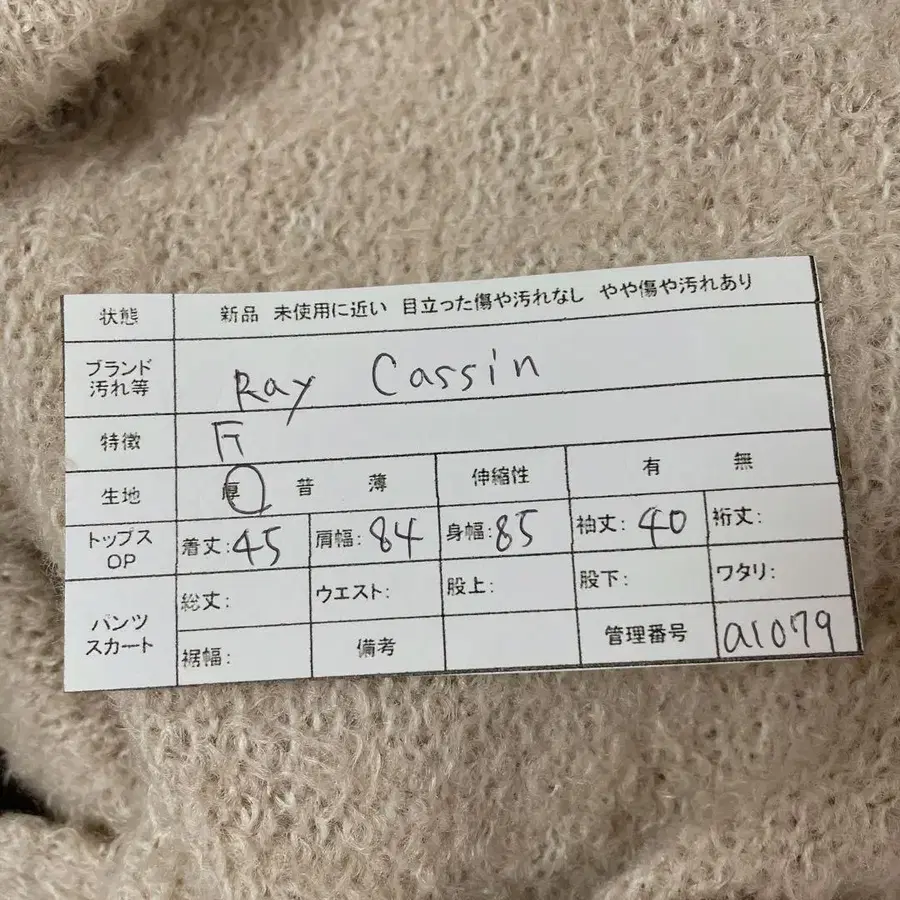 状態 新品 未使用に近い 目立った傷や汚れなし やや傷や汚れあり
ブランド
汚れ等 Ray Cassin
特徴 F
生地 厚 普 薄 伸縮性 有 無
トップス
OP 着丈:45 肩幅:84 身幅:85 袖丈:40 裄丈:
パンツ
スカート 総丈: ウエスト: 股上: 股下: ワタリ:
裾幅: 備考 管理番号 a1079